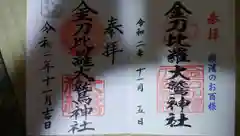 参拝
開運のお酉様
金刀比羅大鷲神社
令和二年十一月五日
奉拝
金刀比羅大鷲神社
令和二年十一月吉日